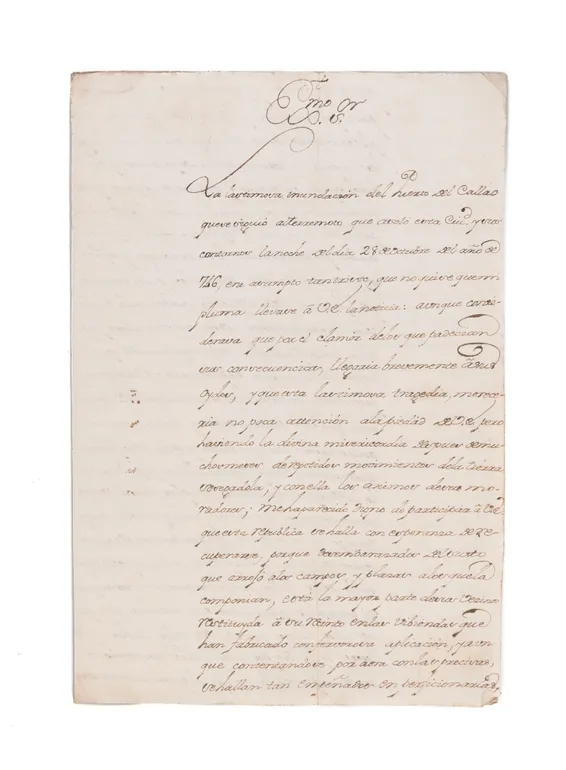 Exmo Sr
S. S.
La lastimosa inundacion del Puerto del Callao
que se siguió al terremoto que asoló esta Ciud. y sus
contornos la noche del dia 28 de Octubre del año de
746, era asumpto tan triste, que no quise que mi
pluma llevase â V.E. la noticia: aunque consi-
derava que por el clamor delos que padecian
sus consecuencias, llegaria brevemente â sus
oydos, y que esta lastimosa tragedia, merece-
ria no poca attención ala piedad de V.E. pero
haviendo la divina misericordia despues de mu-
chos meses de repetidos movimientos dela tierra
sosegadola, y con ella los animos de sus mo-
radores; me ha parecido digno de participar â V.E.
que esta republica se halla con esperanza de re-
cuperarse, porque desembarazada del susto
que arrojó alos campos, y plazas alos que la
componian, está la mayor parte de su vecino
restituyda â su recinto en las viviendas que
han fabricado con fervorosa aplicación, y aun
que contentandose por aora con las precisas,
se hallan tan empeñados en perficionarlas,